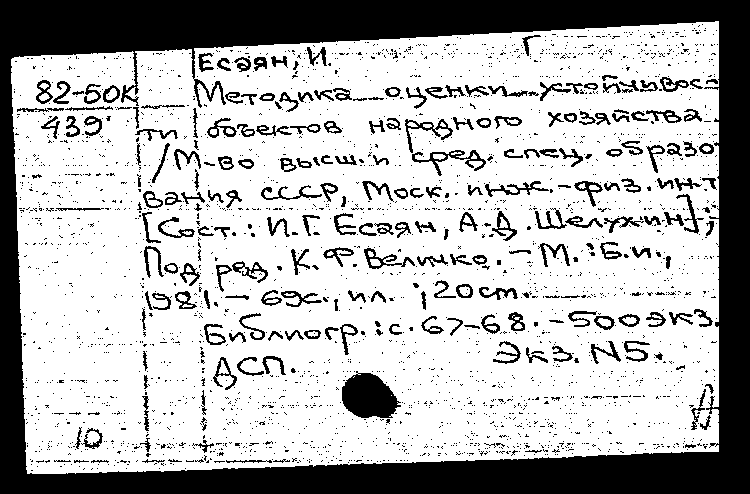 Есаян, И. Г
82-50К Методика оценки устойчивос-
439 ти объектов народного хозяйства
/М-во высш. и сред. спец. образо
вания СССР, Моск. инж.-физ. ин-т
[Сост.: И.Г. Есаян, А.Д. Шелухин];
Под ред. К.Ф. Величко. – М.: Б.и.,
1981. – 69с., ил. ; 20 ст.
Библиогр.: с. 67-68. – 500 экз.
ДСП. Экз. N5.
10